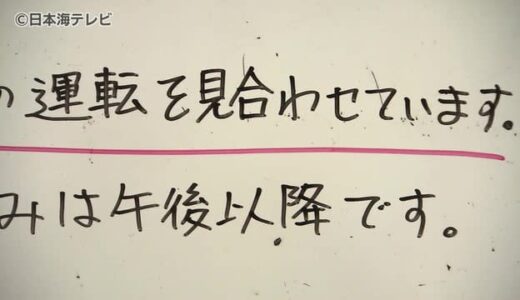 ©日本海テレビ
の運転を見合わせています。
みは午後以降です。